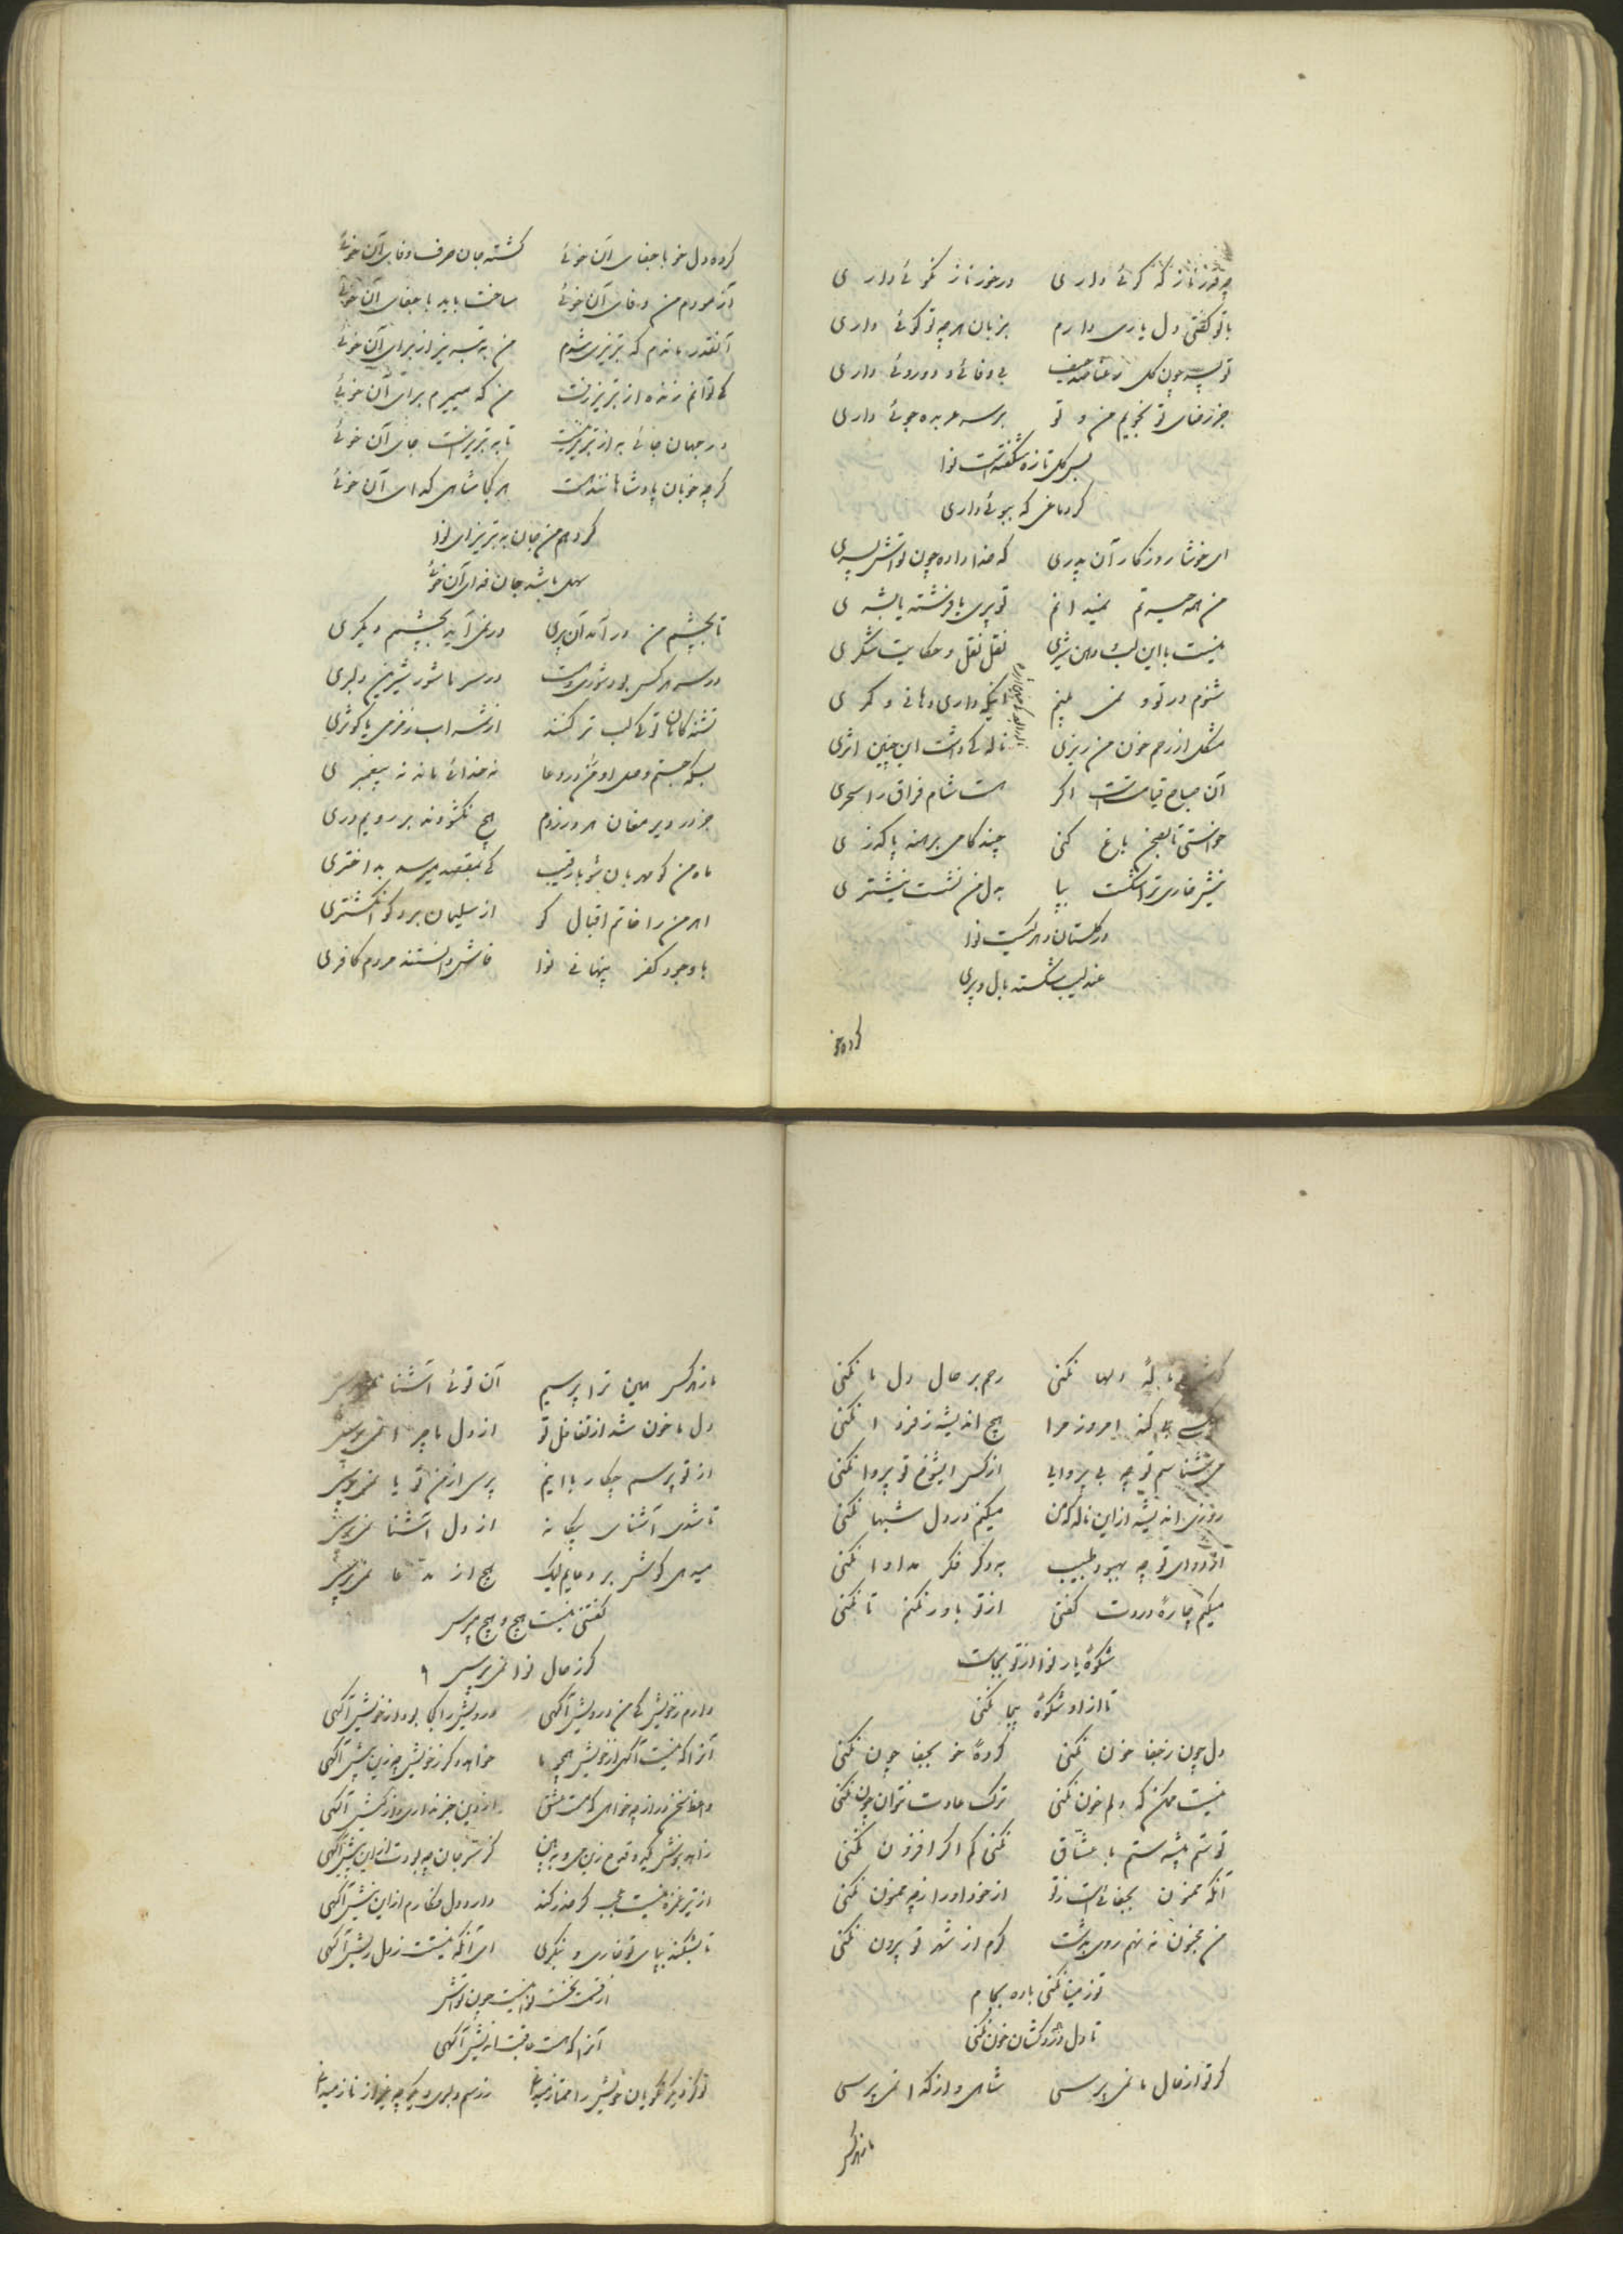 چه قدر ناز که کوئے داری در خور ناز نکوئے داری
با تو کفتی دل یاری دارم بزبان هر چه تو کوئے داری
تو پسر چون کل رعنا صد حیف بی وفائے و دوروئے داری
جز رضای تو نجویم من و تو بر سر عربده جوئے داری
بس کل تازه شکفتست نوا
کر دماغی که ببوئے داری
ای خوشا روزکار آن پدری که خدا داده چون تواش پسری
من همه حیرتم نمیدانم تو پری یا فرشته یا بشری
نیست با این لب و دهن شیرین نقل نقل و حکایت شکری
شنوم در تو و نمی بینم اینکه داری دهانی و کمری
مشکل از رحم خون من ریزی ناله کی داشت این چنین اثری
آن صباح قیامتست اکر هست شام فراق را سحری
خواستی تا بصحن باغ کنی چند کامی برهنه پا کذری
نیش خاری ترا شکست بپا بدل من نشست نیشتری
در کلستان دهر کیست نوا
عندلیب شکسته بال و پری
کرده خو
کرده دل خو با جفای آن خوئے کشته جان صرف وفای آن خوئے
آزمودم من وفای آن خوئے ساخت باید با جفای آن خوئے
آنقدر ماندم که تبریزی شدم من به تبریز از برای آن خوئے
کی توانم زنده از تبریز رفت من که میمیرم برای آن خوئے
در جهان جائے به از تبریز نیست تا به تبریز است جای آن خوئے
کرچه خوبان پادشاهانند هست هر کجا شاهی کدای آن خوئے
کردهم من جان به تبریز ای نوا
سهل باشد جان فدای آن خوئے
تا بچشم من در آمد آن پری در نمی آید بچشمم دیکری
در سر هر کس بود شوری و هست در سر ما شور شیرین دلبری
تشنه کامان تو کی لب تر کنند از شراب زمزمی یا کوثری
بسکه جستم وصل او من در دعا نه خدائے ماند نه پیغمبری
جز در دیر مغان هر در زدم هیچ نکشودند بر رویم دری
ماه من کو مهربان شو با رقیب کی بمقصد میرسد بد اختری
اهرمن را خاتم اقبال کو از سلیمان برد کو انکشتری
با وجود کفر پنهانی نوا فاش دانستند مردم کافری
کوش بر نالهٔ دلها نکنی رحم بر حال دل ما نکنی
کنه امروز مرا هیچ اندیشه ز فردا نکنی
می نشناسم تو چه بی پروایی از کس ایشوخ تو پروا نکنی
روزی اندیشه از این ناله که من میکنم در دل شبها نکنی
از دوای تو چه بهبود طبیب به که دکر فکر مداوا نکنی
میکنم چارهٔ دردت کفتی از تو باور نکنم تا نکنی
شکوهٔ یار نوا از تو بجاست
تا از او شکوهٔ بیجا نکنی
دل چون ز جفا خون نکنی کردهٔ خو بجفا چون نکنی
نیست ممکن که دلم خون نکنی ترک عادت نتوان چون نکنی
تو ستم پیشه ستم با عشاق نکنی کم اکر افزون نکنی
آنکه ممنون بجفائیست ز تو از خود او را ز چه ممنون نکنی
من مجنون ننهم روی بدشت کرم از شهر تو بیرون نکنی
تو ز مینا نکنی باده بجام
تا دل درد کشان خون نکنی
کر تو از حال ما نمی پرسی شاهی و از کدا نمی پرسی
ما ز هر کس
ما ز هر کس همین ترا پرسیم آن توئے آشنا نمی پرسی
دل ما خون شد از تغافل تو از دل ما چرا نمی پرسی
از تو پرسم چکار با اینم پرسی از من تو یا نمی پرسی
تا شدی آشنای بیکانه از دل آشنا نمی پرسی
میدهی کوش بر دعایم لیک هیچ از مدعا نمی پرسی
کفتنی نیست هیچ و هیچ مپرس
کز حال نوا نمی پرسی
دارم ز خویش کی من درویش آکهی درویش را کجا بود از خویش آکهی
آنرا که نیست آکهی از خویش همچو ما خواهد دکر ز خویش چه زین بیش آکهی
واعظ سخن دراز چه خواهی که مست عشق از دین خبر ندارد و از کیش آکهی
از تیر غمزه نیست عجب کر حذر کند دارد دل فکارم از این نیش آکهی
تا نشکند بپای تو خاری و ننکری ای آنکه نیستت ز دل ریش آکهی
از قسمت نخست نوا نیست چون تواش
آنرا که هست عاقبت اندیش آکهی